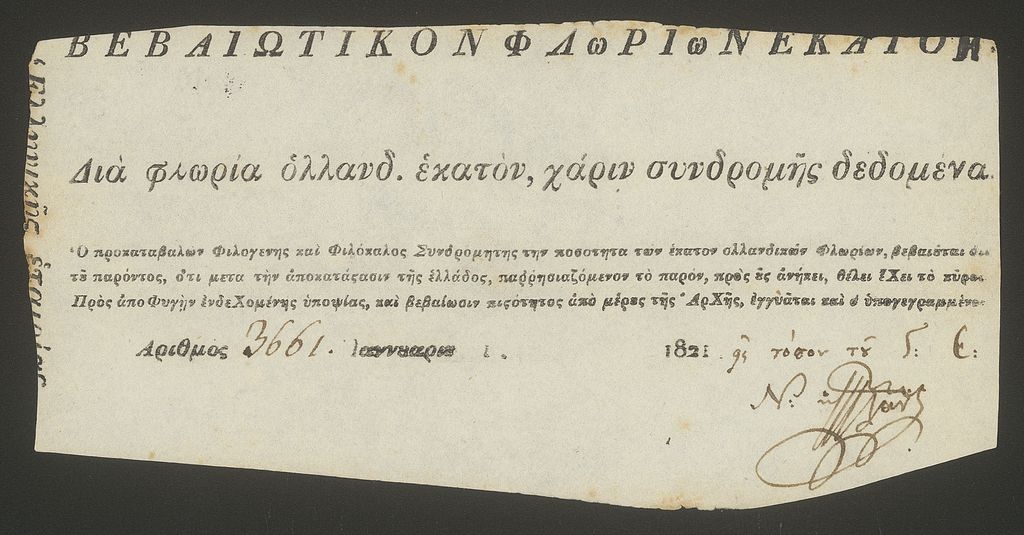 ΒΕΒΑΙΩΤΙΚΟΝ ΦΛωΡΙωΝ ΕΚΑΤΟΝ.
Διὰ φλωρία ὁλλανδ. ἑκατὸν, χάριν συνδρομῆς δεδομένα.
Ὁ προκαταβαλων Φιλογενης καὶ Φιλόκαλος Συνδρομητης την ποσοτητα των ἑκατον ολλανδικων Φλωρίων, βεβαιȣται
τȣ παρόντος, ὅτι μετα τὴν ἀποκατάϛασιν τῆς ἑλλάδος, παῤῥησιαζόμενον τὸ παρὸν, πρὸς ȣς ἀνήκει, θέλει ἔΧει τὸ κῦρ
Πρὸς ἀποΦυγὴν ἐνδεΧομένης ὑποψίας, καὶ βεβαίωσιν πιϛότητος ἀπὸ μέρȣς τῆς ἈρΧῆς, ἐγγυᾶται καὶ ὁ ὑπογεγραμμένος
Αριθμος 3661. Ιαννυαριȣ 1. 1821 τόσον τȣ
Ν:
Ἑλληνικῆς